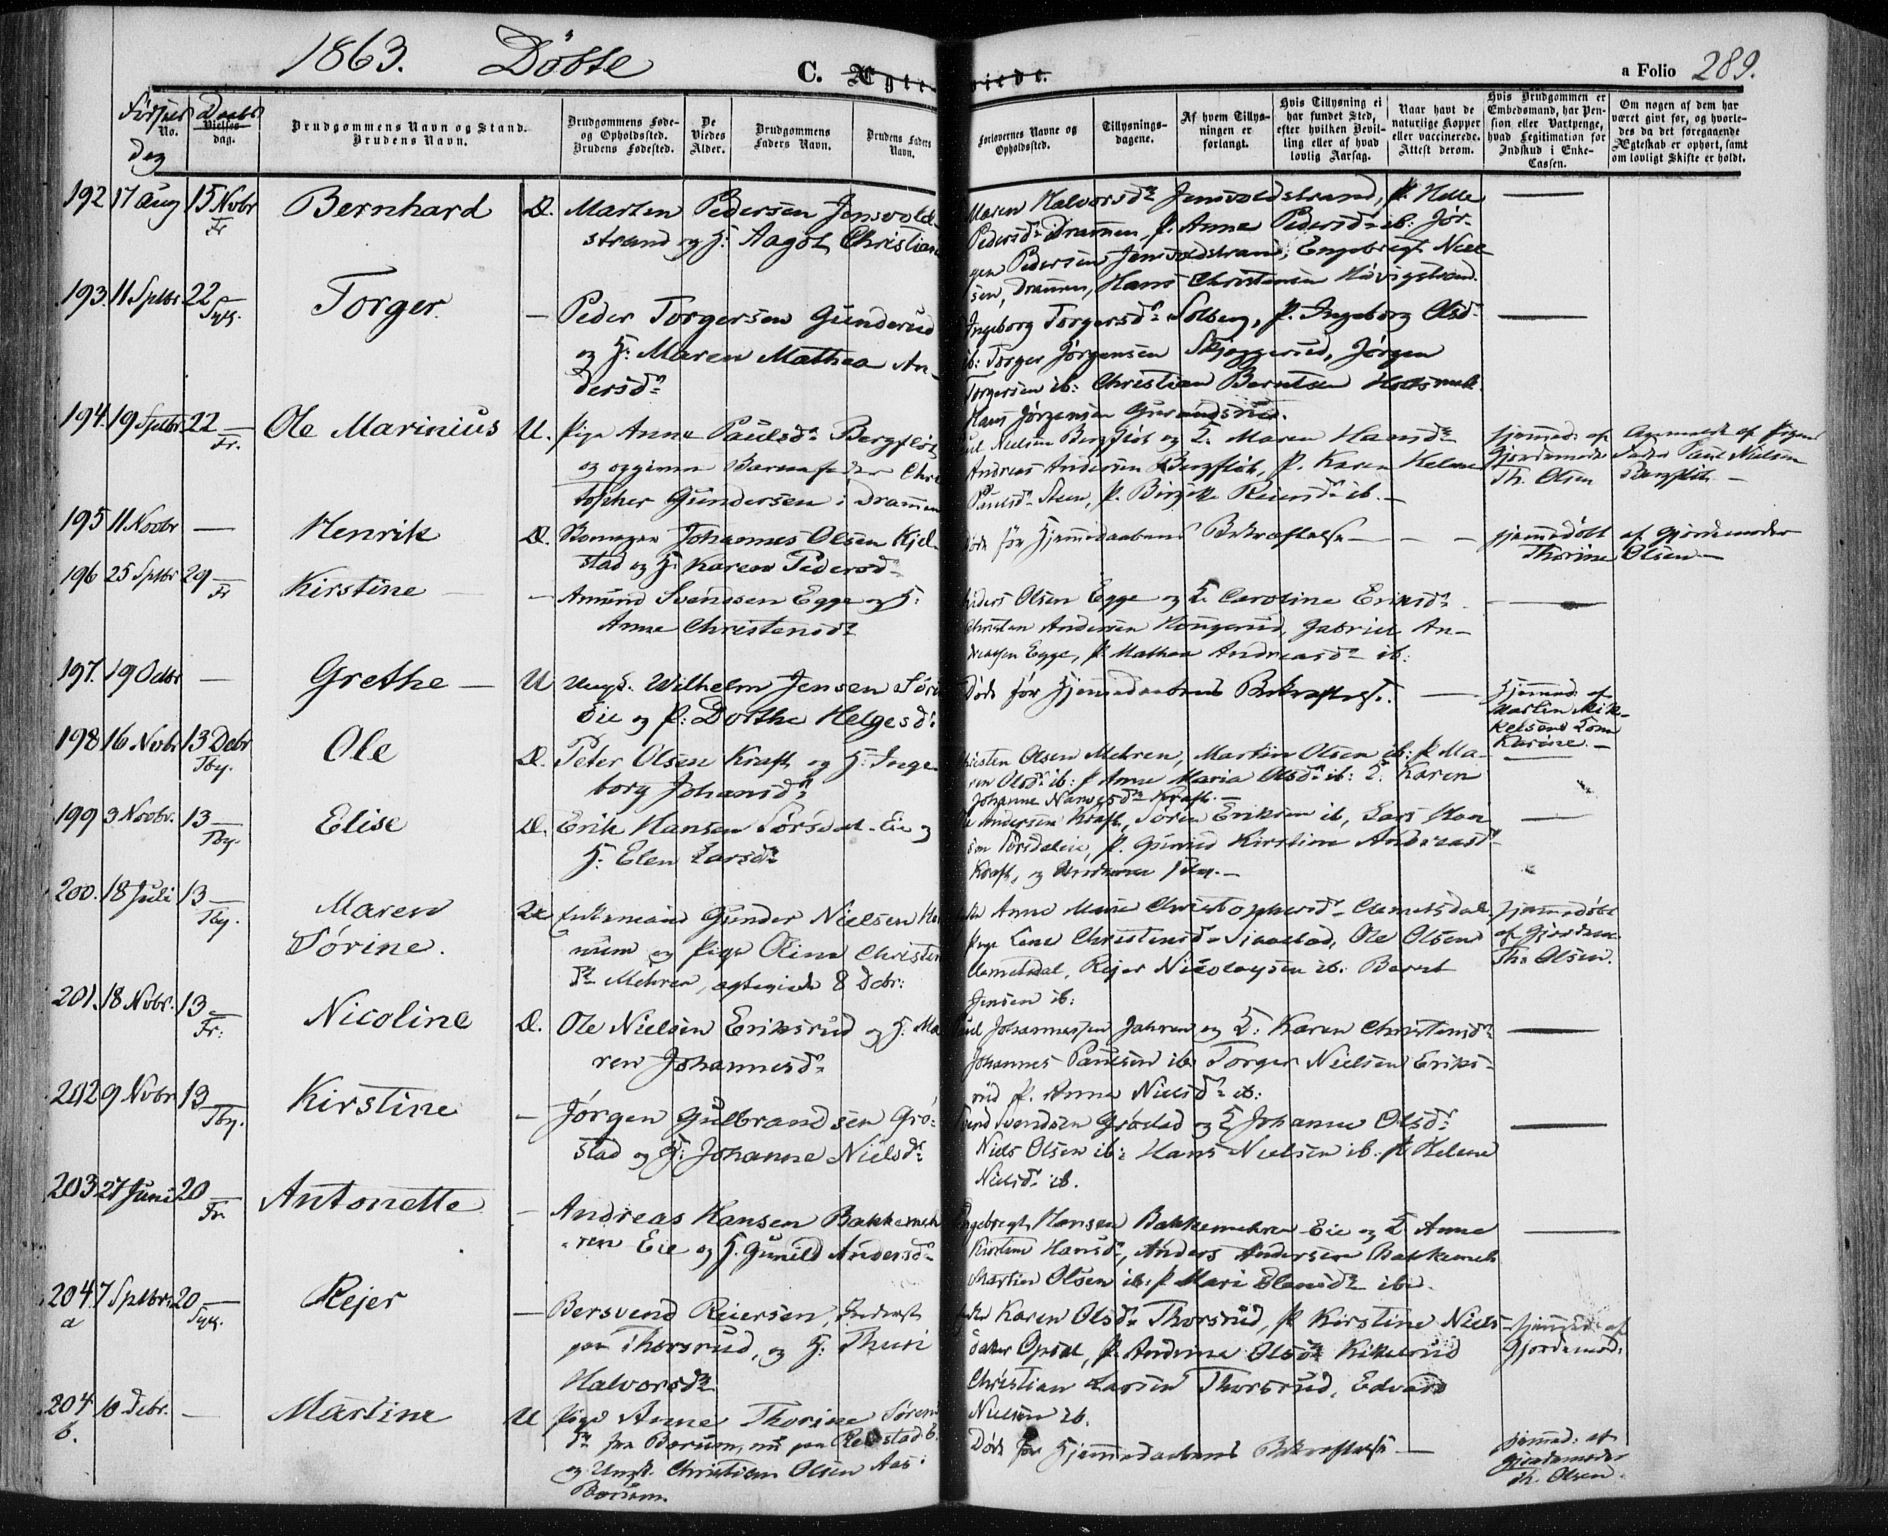 1863. Döbte C. Ægte viede. a Folio 289.
Födsels Daabs
No. Vielses dag.
Dag
Brudgommens Navn og Stand.
Brudens Navn.
Brudgommens Føde-
og Opholdssted.
Brudens Fødested.
De
Viedes
Alder.
Brudgommens
Faders Navn.
Brudens Faders
Navn.
Forlovernes Navne og
Opholdssted.
Tillysnings-
dagene.
Af hvem Tillys-
ningen er
forlangt.
Hvis Tillysning ei
har fundet Sted,
efter hvilken Bevil-
ling eller af hvad
lovlig Aarsag.
Naar havt de
naturlige Kopper
eller vaccinerede.
Attest derom.
Hvis Brudgommen er
Embedsmand, har Pen-
sion eller Vartpenge,
hvad Legitimation for
Indskud i Enke-
Cassen.
Om nogen af dem har
været givt før, og hvorle-
des da det foregaaende
Ægteskab er ophørt, samt
om lovligt Skifte er holdt.
192 17 Aug 15 Nvbr Fr Bernhard D. Marten Pedersen Jensvold
strand og H: Aagot Christian
Maren Halvorsdr Jensvoldstrand, P. Helle
Pedersdr Drammen, P. Anne Pedersdr ib: Jör-
gen Pedersen Jensvoldstrand, Engebregt Niel-
sen, Drammen, Hans Christensen
193. 11 Sptbr 22 — Torger. — Peder Torgersen Gunderud
og H: Maren Mathea An-
dersdr
Ingeborg Torgersdr Solberg, P. Ingeborg Olsdr
ib: Torger Jörgensen Skjeggerud, Jörgen
Torgersen ib: Christian Berntsen
Hans Jörgensen
194. 19 Sptbr 22 — Fr. Ole Marinius U. Pige Anne Paulsdr Bergflöt
og opgiven Barnefader Chri-
stopher Gundersen i Drammen
Nielsen Bergflöt og H. Maren Hansdr
Andreas Andersen Bergflöt, P. Karen Helene
Paulsdr Steen, P. Birgitte Reiersdr ib. —
hjemmed: af
Gjordemoder
Th. Olsen
Anmeldt af Pigens
Fader Paul Nielsen
Bergflöt. —
195 11 Novbr — Henrik D. Johannes Olsen Kjel-
stad og H: Karen Pedersdr
Döde för Hjemmedaabens Bekræftelse — — —
hjemmedöbt af Gjordemoder
Thorine Olsen —
196 25 Sptbr 29 — Fr Kirstine — Amund Svendsen Egge og H:
Anne Christensdr
Anders Olsen Egge og H. Caroline Eriksdr
Christian Andersen Hougerud, Gabriel An-
dreasen Egge, P. Mathea Andreasdr ib:
197. 19 Octbr — Grethe — U Ungk. Wilhelm Jensen
Eie og P: Dorthe Helgesdr
Döde för Hjemmedaabens Bekræftelse. —
hjemmed: af
Martin Mik-
kelsens Kone
Karine. —
198 16 Nvbr 13 Debr Tby. Ole D. Peter Olsen Kraft og H: Inge-
borg Johansdr
Christen Olsen Mehren, Martin Olsen ib: P. Ma-
ren Olsdr ib: P. Anne Maria Olsdr ib: H. Karen
Johanne Kraft. —
199 3 Novbr. 13 — Tby. Elise D. Erik Hansen Törsdal-Eie og
H: Elen Larsdr
Ole Andersen Kraft, Sören Eriksen ib, Lars Han-
sen Törsdaleie, P. Gunild Kirstine Andreasdr
Kraft, og
200. 18 Juli 13 — Tby. Maren
Sörine.
Enkemand Gunder Nielsen
og Pige Oline Christens
dr Mehren, ægteviede 8 Debr:
Anne Marie Christophersdr Clemetsdal
Pige Lene Christensdr, Ole Olsen
Clemetsdal, Rejer Nicolaysen ib: Bernt
Jensen ib:
hjemmedöbt
af Gjordem.
Th: Olsen.
201. 18 Nvbr. 13 — Fr: Nicoline D. Ole Nielsen Eriksrud og H: Ma
ren Johannesdr
Paul Johannessen Jahren og H: Karen Christensdr
Johannes Paulsen ib: Torger Nielsen Eriks-
rud P. Anne Nielsdr ib:
202 9 Nvbr 13 — Tby. Kirstine — Jörgen Gulbrandsen Grö-
stad og H: Johanne Nielsdr
Svend Svendsen Gröstad og H Johanne Olsdr
Niels Olsen ib: Hans Nielsen ib. P. Helene
Nielsdr ib.
203 27 Juni 20 — Fr. Antonette — Andreas Hansen Bakkemeh
ren Eie og H. Gunild Andersdr
Engebregt Hansen Bakkemehren Eie og H Anne
Kirstine Hansdr, Anders Andersen Bakkemeh
Martin Olsen ib: P. Mari ib.
204 a 7 Sptbr 20 — Rejer — Bersvend Reiersen, Inderst
paa Thorsrud, og H: Thuri
Halvorsdr
Karen Olsdr Thorsrud, P. Kirstine Niels-
datter Opsal, P. Andrine Olsdr Kikelsrud
Christian Larsen Thorsrud, Edvard
Nielsen ib.
hjemmed: af
Gjordemod:
204 b. 10 Debr. — Martine U Pige Anne Thorine Sörens
dr fra Borum, nu paa
og Ungk. Christian Olsen Aas i
Borum.
Döde för Hjemmedaabens Bekræftelse —
hjemmed: af
Gjordemoder
Th. Olsen.